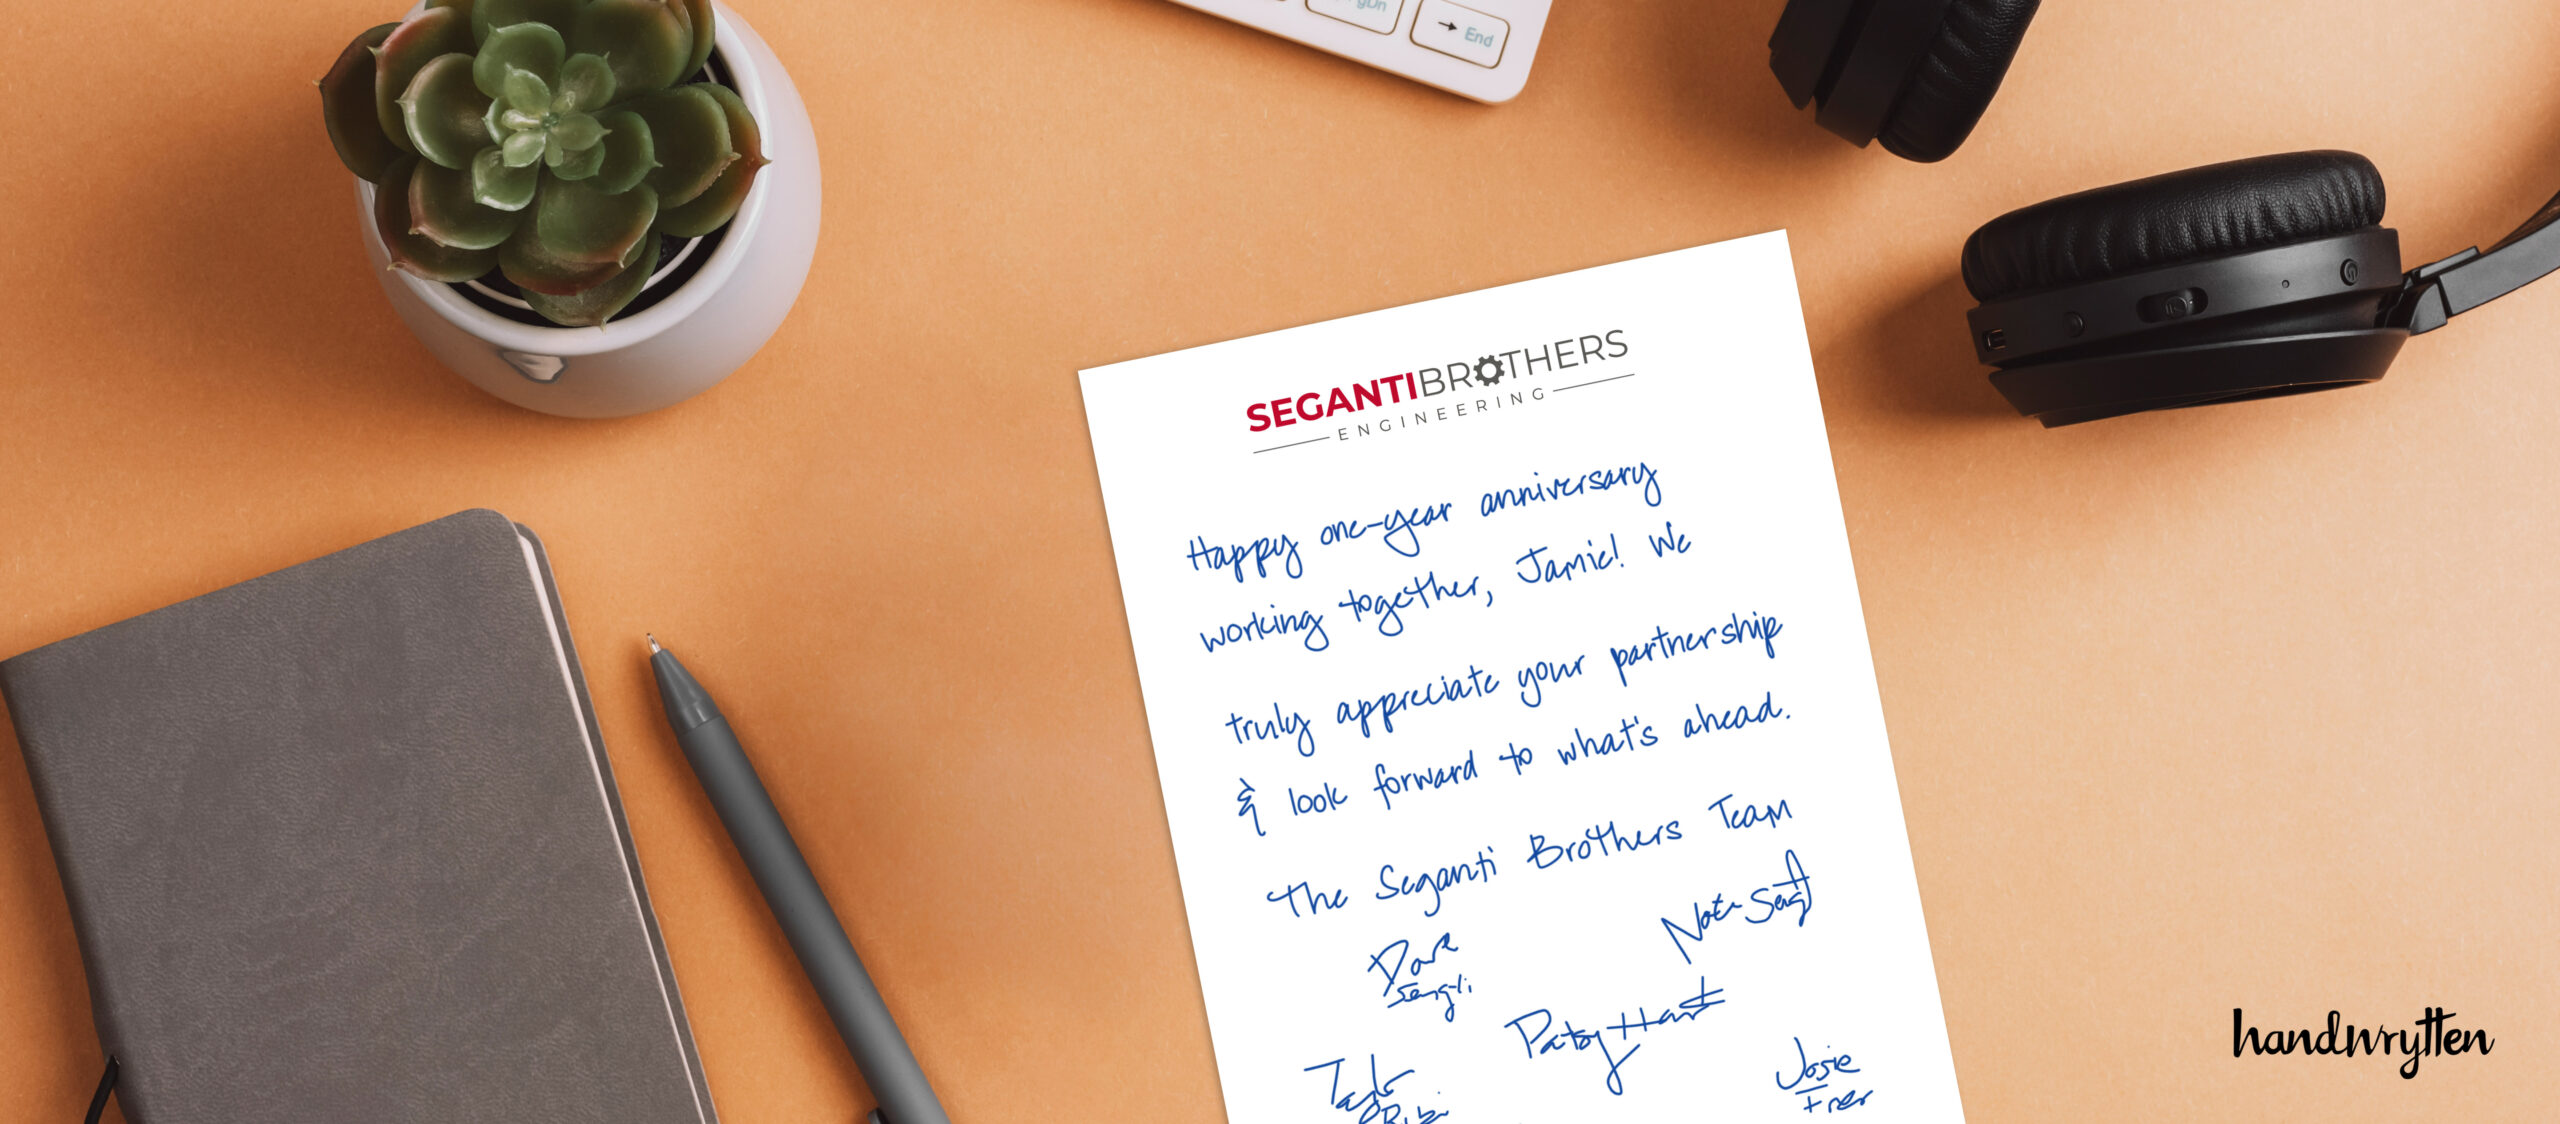 PgDn
End
SEGANTI BROTHERS
ENGINEERING
Happy one-year anniversary
working together, Jamie! We
truly appreciate your partnership
& look forward to what's ahead.
The Seganti Brothers Team
Dave
Nate
Patsy Hart
Josie
handwrytten